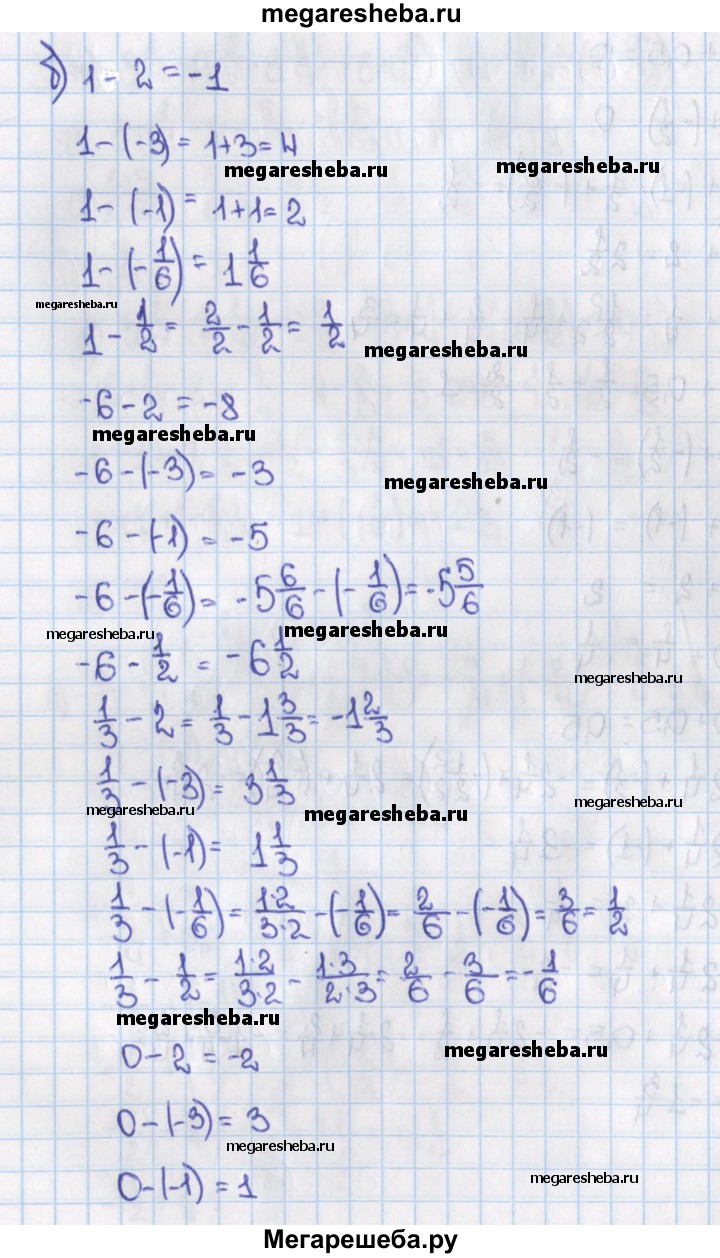 megaresheba.ru
б) 1 - 2 = -1
1 - (-3) = 1+3 = 4
megaresheba.ru megaresheba.ru
1 - (-1) = 1+1 = 2
1 - (-1/6) = 1 1/6
megaresheba.ru
1 - 1/2 = 2/2 - 1/2 = 1/2
megaresheba.ru
-6 - 2 = -8
megaresheba.ru
-6 - (-3) = -3
megaresheba.ru
-6 - (-1) = -5
-6 - (-1/6) = -5 6/6 - (-1/6) = -5 5/6
megaresheba.ru megaresheba.ru
-6 - 1/2 = -6 1/2
megaresheba.ru
1/3 - 2 = 1/3 - 1 3/3 = -1 2/3
1/3 - (-3) = 3 1/3
megaresheba.ru megaresheba.ru megaresheba.ru
1/3 - (-1) = 1 1/3
1/3 - (-1/6) = 1·2/3·2 - (-1/6) = 2/6 - (-1/6) = 3/6 = 1/2
1/3 - 1/2 = 1·2/3·2 - 1·3/2·3 = 2/6 - 3/6 = -1/6
megaresheba.ru
0 - 2 = -2
megaresheba.ru
0 - (-3) = 3
megaresheba.ru
0 - (-1) = 1
megaresheba.ru
Мегарешеба.ру